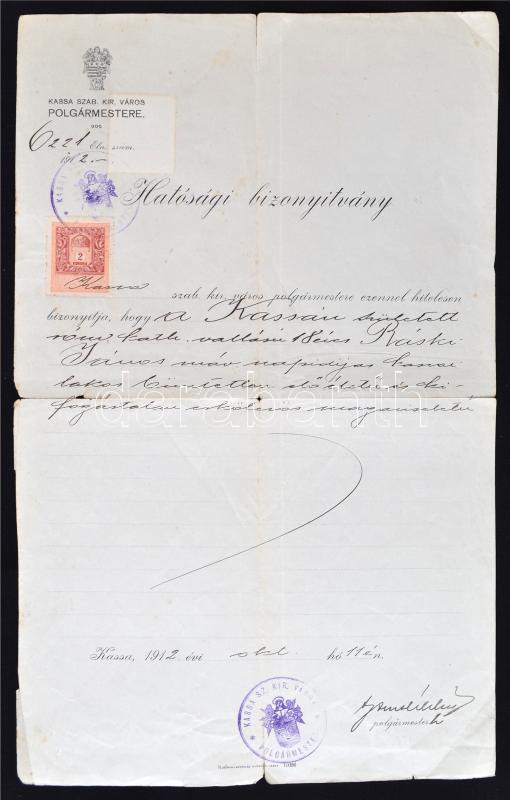 KASSA SZAB. KIR. VÁROS
POLGÁRMESTERE.
6221 Eln. szám.
1912.
Hatósági bizonyitvány
2
KORONA
Kassa szab. kir. város polgármestere ezennel hitelesen
bizonyitja, hogy a Kassán született
róm. kath. vallású 18 éves Ráski
János máv napidíjas kassai
lakos büntetlen előéletű és ki-
fogástalan erkölcsös magaviseletű
darabanth
Kassa, 1912 évi okt. hó 11 én.
polgármester h
KASSA SZ. KIR. VÁROS
POLGÁRMESTE